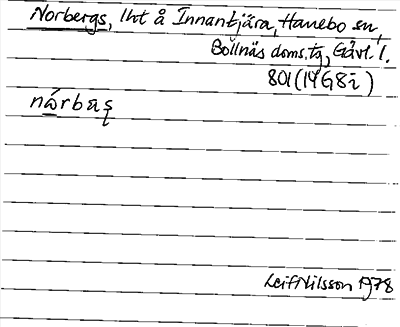 Norbergs, lht å Innantjära, Hanebo sn,
Bollnäs doms.tg, Gävl. l.
801 (14G8i)
nárbas̨
Leif Nilsson 1978